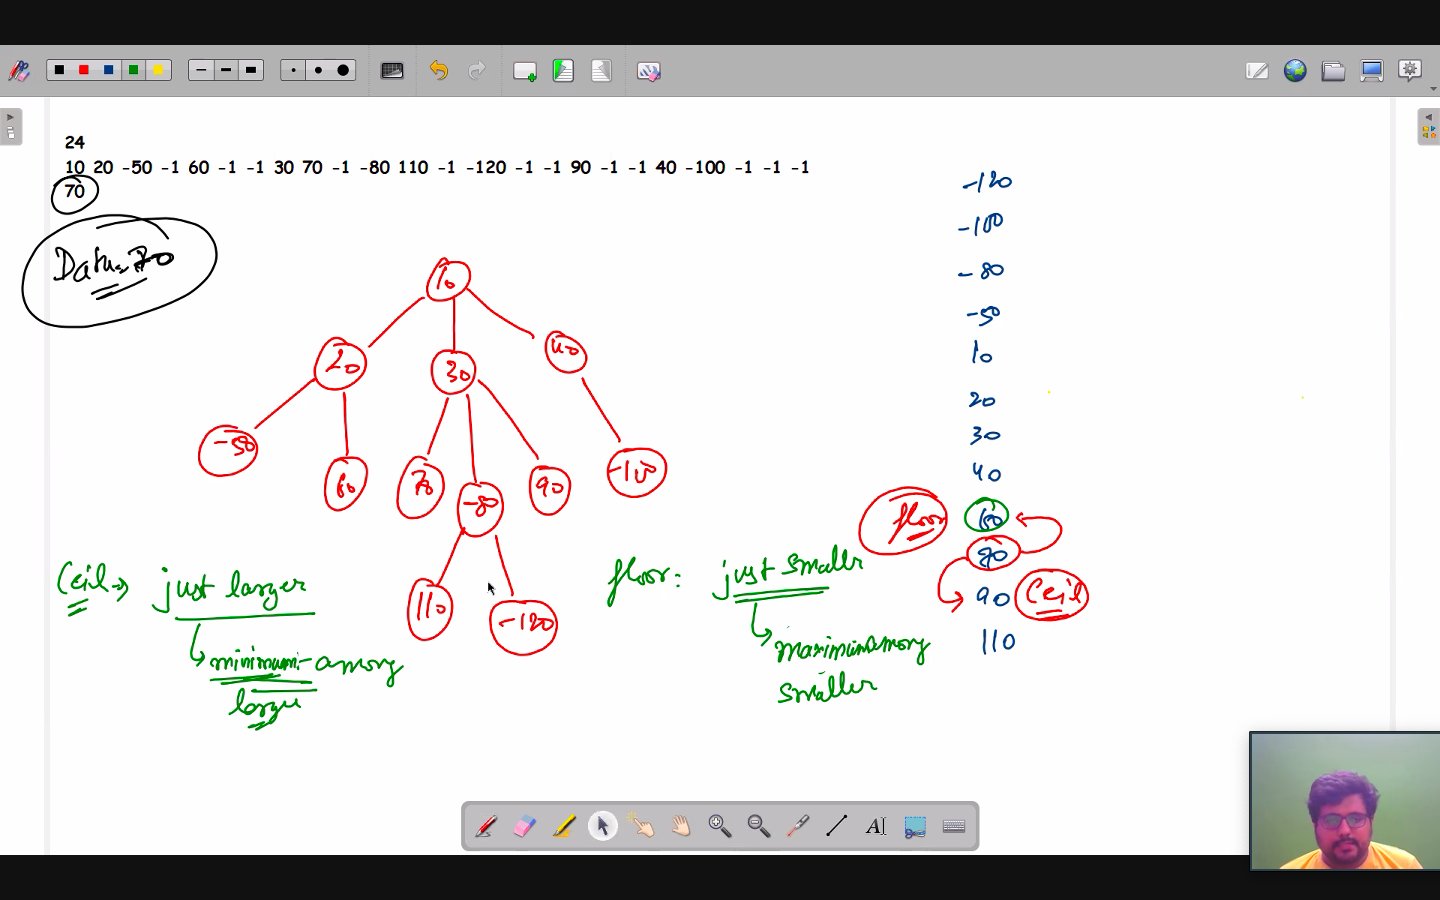 24
10 20 -50 -1 60 -1 -1 30 70 -1 -80 110 -1 -120 -1 -1 90 -1 -1 40 -100 -1 -1 -1
70
Data=70
10
20
30
40
-50
60
70
-80
90
-100
110
-120
Ceil → just larger
minimum among
larger
floor: just smaller
maximum among
smaller
-120
-100
-80
-50
10
20
30
40
floor 60
70
90 Ceil
110
AI